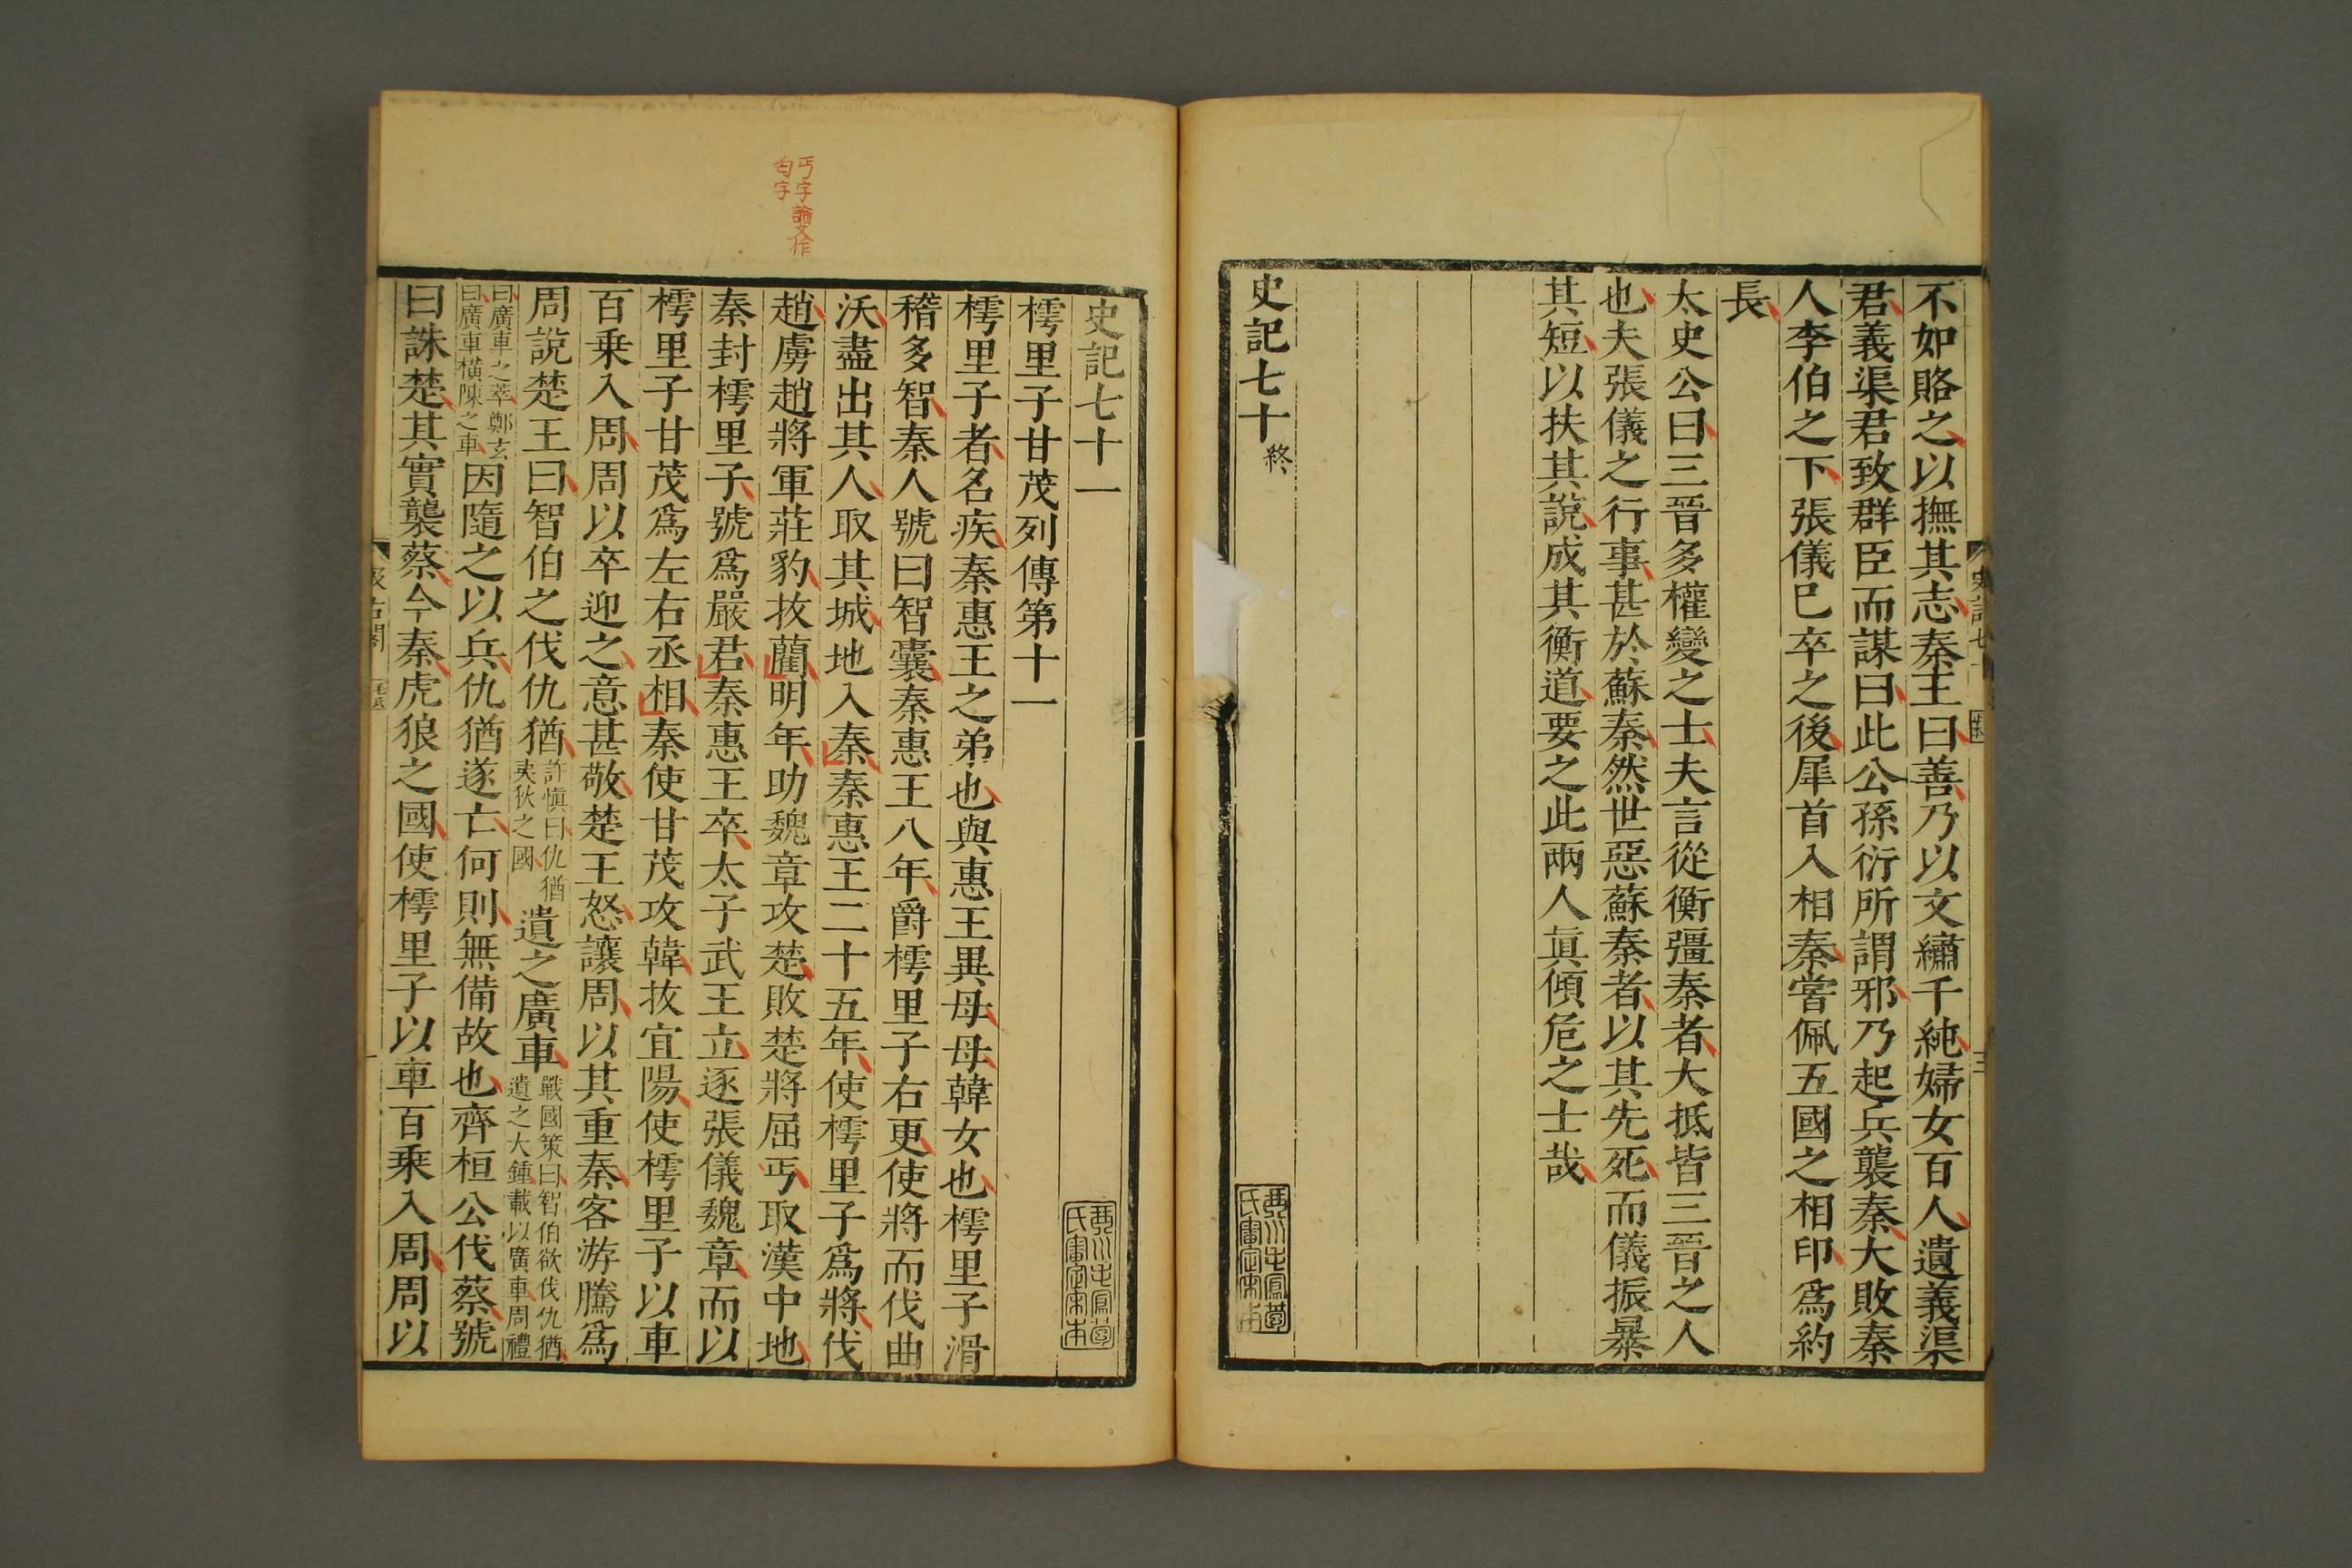 不如賂之以撫其志秦王曰善乃以文繡千純婦女百人遺義渠
君義渠君致群臣而謀曰此公孫衍所謂邪乃起兵襲秦大敗秦
人李伯之下張儀巳卒之後犀首入相秦嘗佩五國之相印爲約
長
太史公曰三晉多權變之士夫言從衡彊秦者大抵皆三晉之人
也夫張儀之行事甚於蘇秦然世惡蘇秦者以其先死而儀振暴
其短以扶其說成其衡道要之此兩人眞傾危之士哉
史記七十終
史記七十一
樗里子甘茂列傳第十一
樗里子者名疾秦惠王之弟也與惠王異母母韓女也樗里子滑
稽多智秦人號曰智囊秦惠王八年爵樗里子右更使將而伐曲
沃盡出其人取其城地入秦秦惠王二十五年使樗里子爲將伐
趙虜趙將軍莊豹拔藺明年助魏章攻楚敗楚將屈丐取漢中地
秦封樗里子號爲嚴君秦惠王卒太子武王立逐張儀魏章而以
樗里子甘茂爲左右丞相秦使甘茂攻韓拔宜陽使樗里子以車
百乗入周周以卒迎之意甚敬楚王怒讓周以其重秦客游騰爲
周說楚王曰智伯之伐仇猶許愼曰仇猶夷狄之國遺之廣車戰國策曰智伯欲伐仇猶遺之大鍾載以廣車周禮
曰廣車之萃鄭玄曰廣車橫陳之車因隨之以兵仇猶遂亡何則無備故也齊桓公伐蔡號
曰誅楚其實襲蔡今秦虎狼之國使樗里子以車百乗入周周以
丐字論文作
匄字